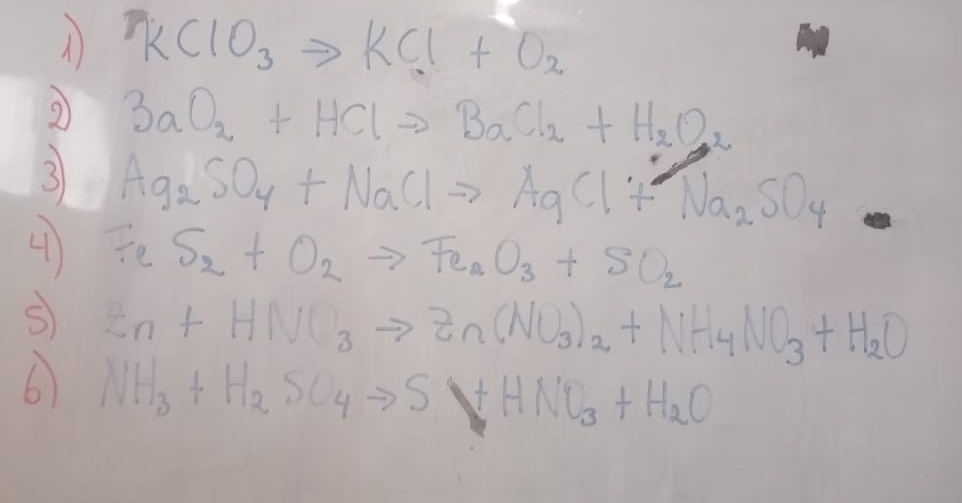 1) KClO₃ ⇒ KCl + O₂
2) BaO₂ + HCl ⇒ BaCl₂ + H₂O₂
3) Ag₂SO₄ + NaCl ⇒ AgCl + Na₂SO₄
4) FeS₂ + O₂ → Fe₂O₃ + SO₂
5) Zn + HNO₃ → Zn(NO₃)₂ + NH₄NO₃ + H₂O
6) NH₃ + H₂SO₄ → S + HNO₃ + H₂O